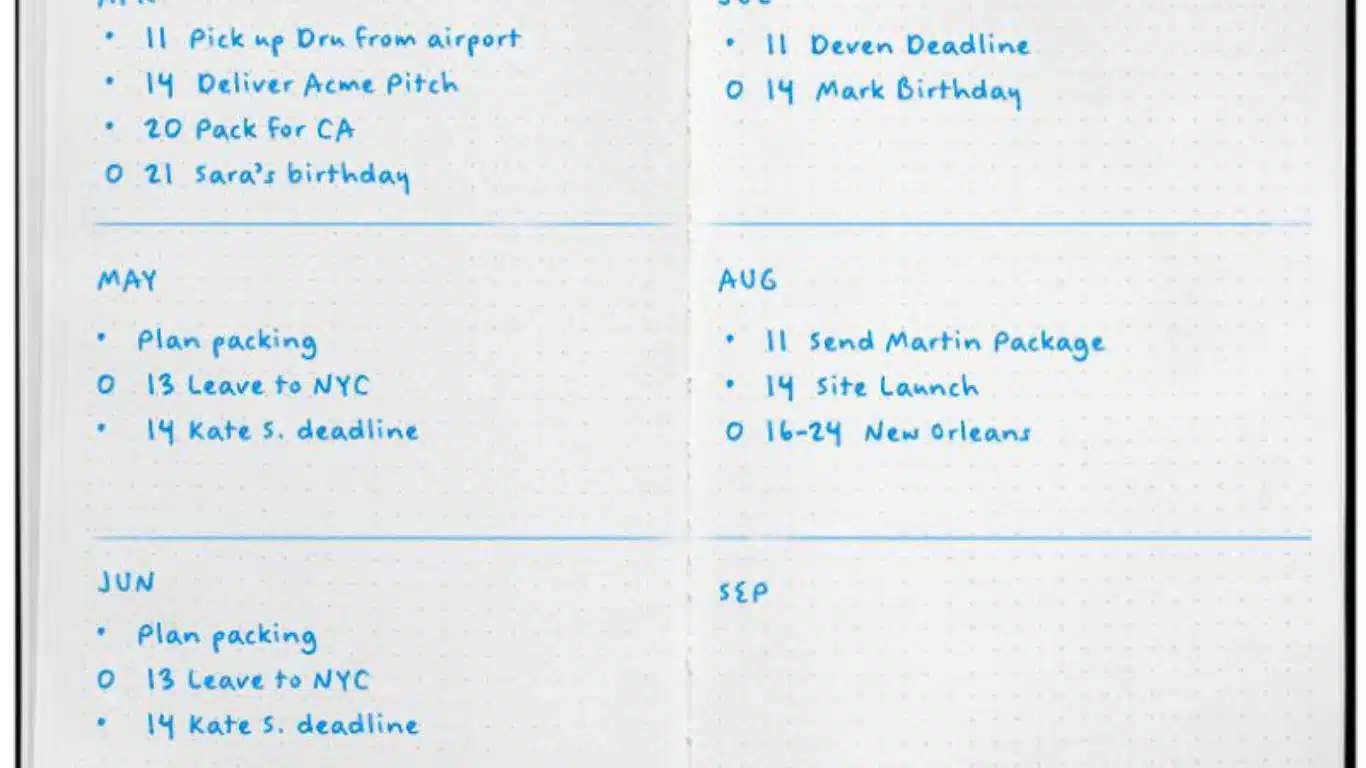 • 11 Pick up Dru from airport
• 14 Deliver Acme Pitch
• 20 Pack for CA
O 21 Sara's birthday
MAY
• Plan packing
O 13 Leave to NYC
• 14 Kate S. deadline
JUN
• Plan packing
O 13 Leave to NYC
• 14 Kate S. deadline
• 11 Deven Deadline
O 14 Mark Birthday
AUG
• 11 Send Martin Package
• 14 Site Launch
O 16-24 New Orleans
SEP